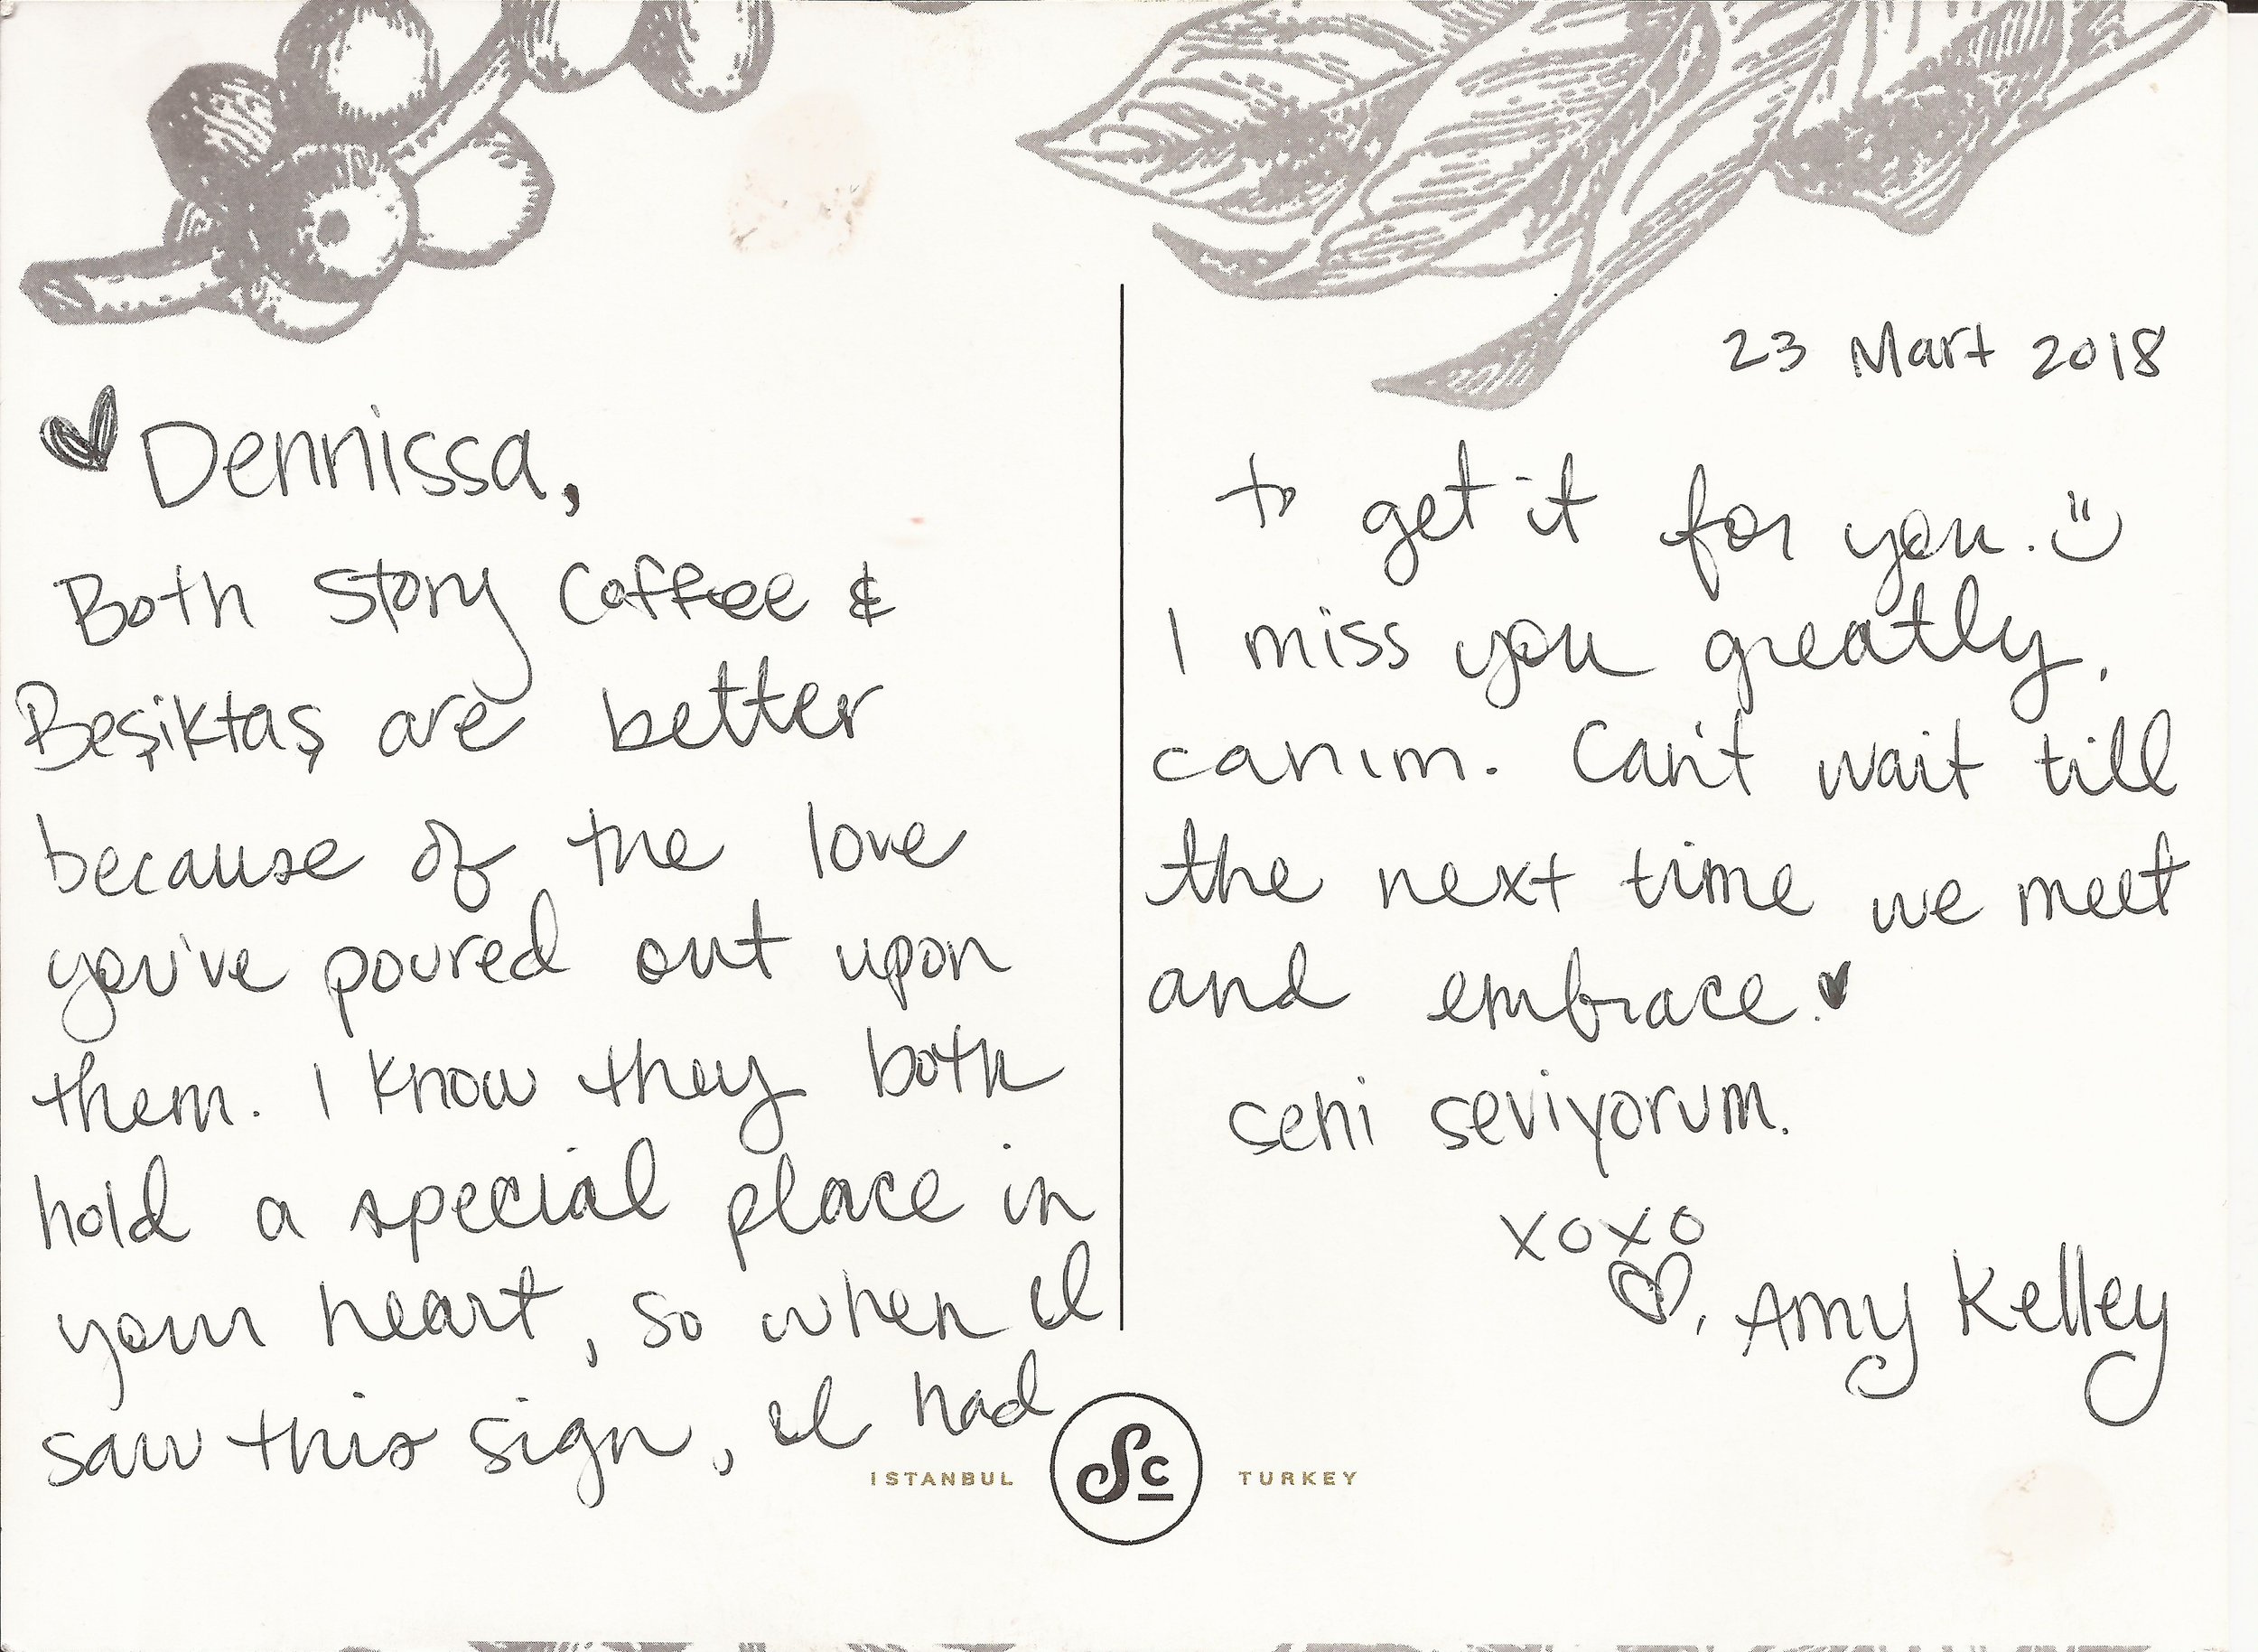 Dennissa,
Both Story Coffee &
Beşiktaş are better
because of the love
you've poured out upon
them. I know they both
hold a special place in
your heart, so when I
saw this sign, I had
23 Mart 2018
to get it for you. :)
I miss you greatly,
canım. Can't wait till
the next time we meet
and embrace. ♥
seni seviyorum.
xoxo
♡, Amy Kelley
ISTANBUL Sc TURKEY